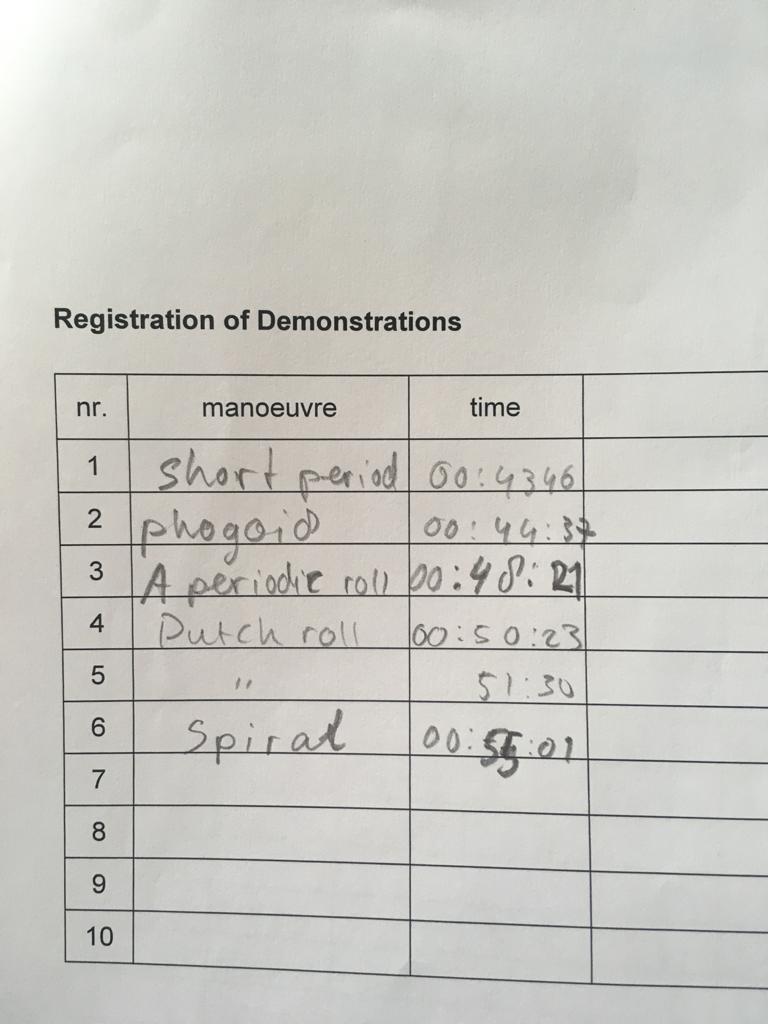 Registration of Demonstrations
nr. manoeuvre time
1 short period 00:4346
2 phogoid 00:44:37
3 A periodic roll 00:48:21
4 Dutch roll 00:50:23
5 " 51:30
6 Spiral 00:55:01
7
8
9
10